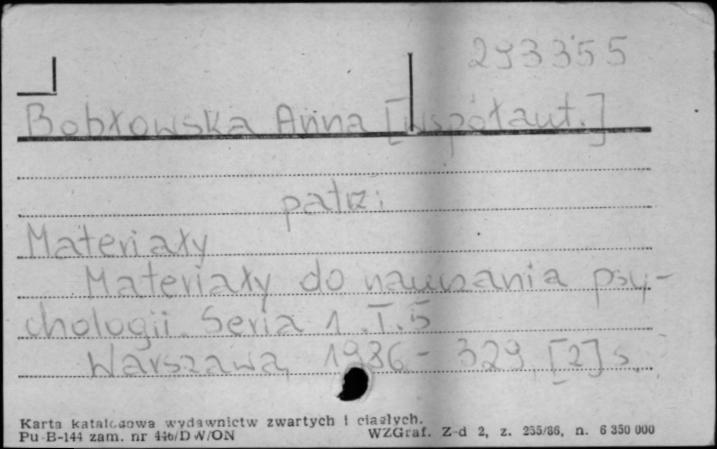 293355
Bobłowska Anna [współaut.]
patrz:
Materiały
Materiały do nauczania psy-
chologii. Seria 1. T. 5
Warszawa, 1986.- 329, [2] s.
Karta katalogowa wydawnictw zwartych i ciągłych.
Pu-B-144 zam. nr 446/DW/ON
WZGraf. Z-d 2, z. 255/86, n. 6 350 000